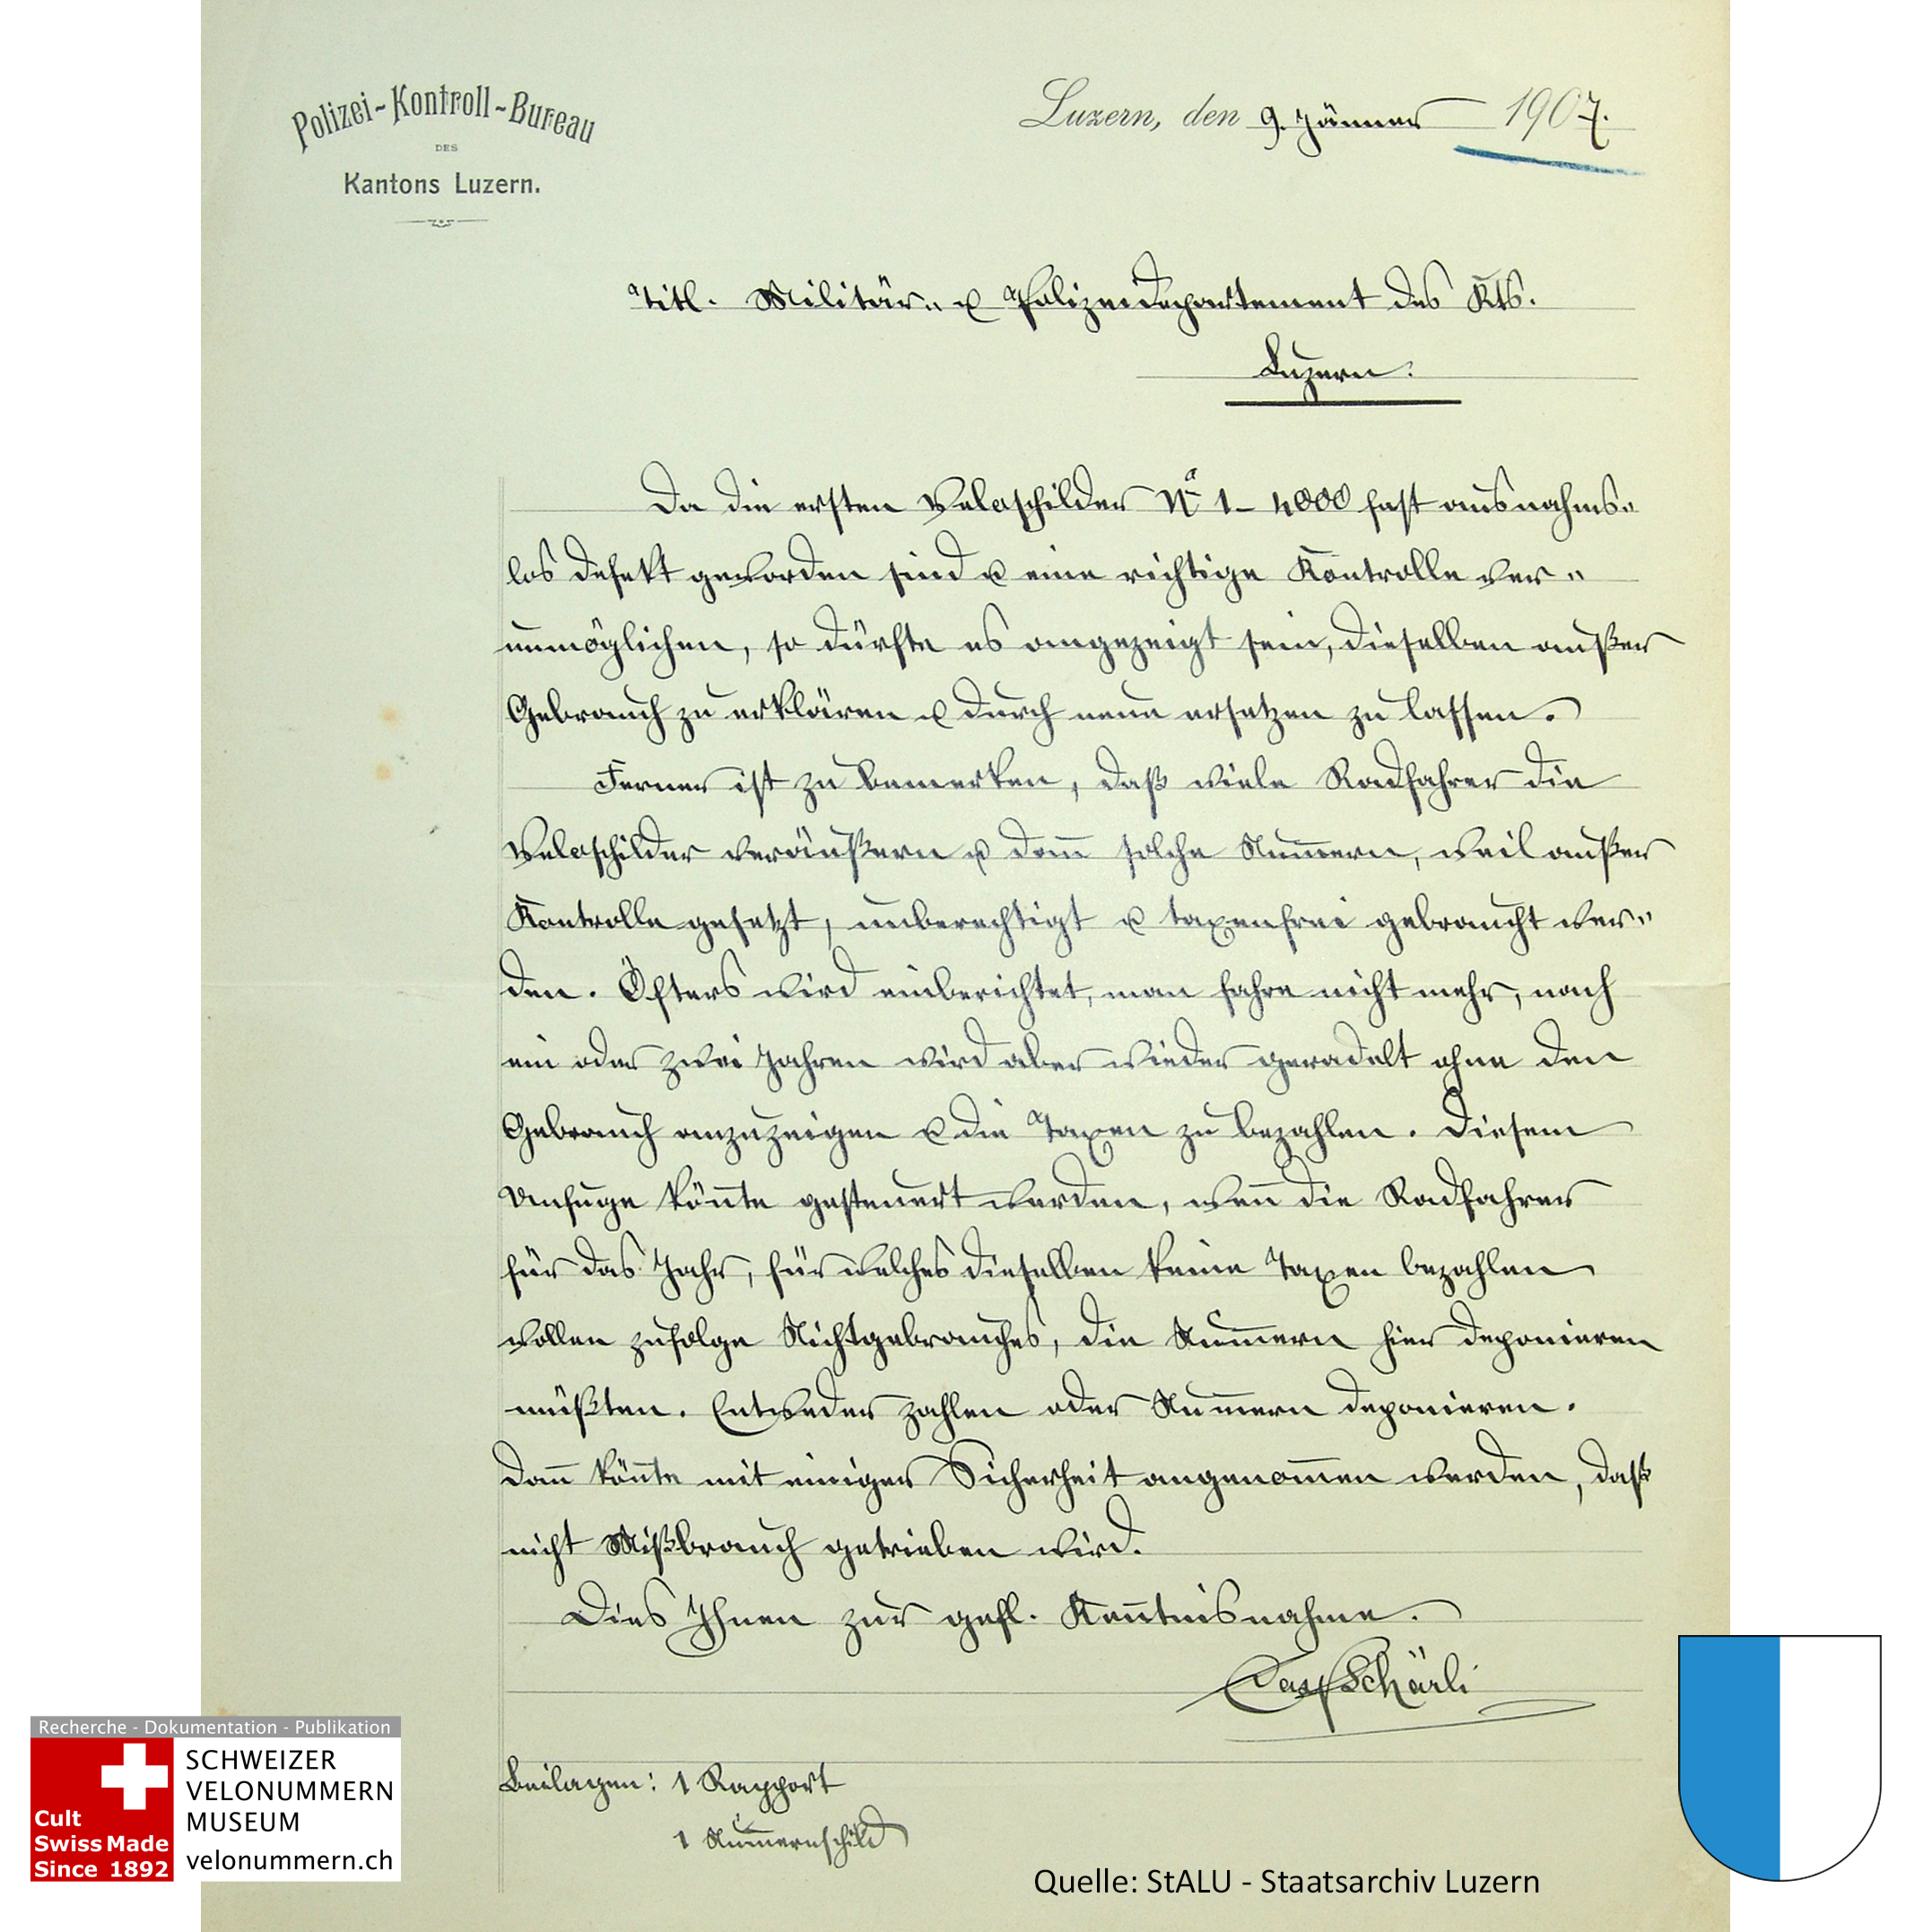 Polizei-Kontroll-Bureau
DES
Kantons Luzern.
Luzern, den 9. Jänner 1907.
Titl. Militär- u Polizeidepartement des Kts.
Luzern.
Da die ersten Veloschilder No 1 - 4000 fast ausnahms-
los defekt geworden sind u eine richtige Kontrolle ver-
unmöglichen, so dürfte es angezeigt sein, dieselben außer
Gebrauch zu erklären u durch neue ersetzen zu lassen.
Ferner ist zu bemerken, daß viele Radfahrer die
Veloschilder veräußern u dann solche Nummern, weil außer
Kontrolle gesetzt, unberechtigt u taxenfrei gebraucht wer-
den. Öfters wird einberichtet, man fahre nicht mehr, nach
ein oder zwei Jahren wird aber wieder geradelt ohne den
Gebrauch anzuzeigen u die Taxen zu bezahlen. Diesem
Unfuge könnte gesteuert werden, wenn die Radfahrer
für das Jahr, für welches dieselben keine Taxen bezahlen
wollen zufolge Nichtgebrauches, die Nummern hier deponieren
müßten. Entweder zahlen oder Nummern deponieren.
Dann könnte mit einiger Sicherheit angenommen werden, daß
nicht Mißbrauch getrieben wird.
Dies Ihnen zur gefl. Kenntnisnahme.
Casp Schärli
Beilagen: 1 Rapport
1 Nummernschild
Recherche - Dokumentation - Publikation
SCHWEIZER
VELONUMMERN
MUSEUM
velonummern.ch
Cult
Swiss Made
Since 1892
Quelle: StALU - Staatsarchiv Luzern